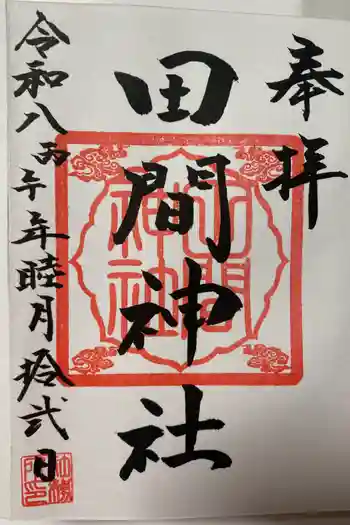 奉拝
田間神社
令和八丙午年睦月拾弐日
田間神社